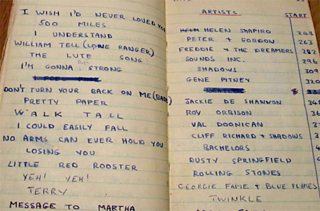 I WISH I'D NEVER LOVED YOU
500 MILES
I UNDERSTAND
WILLIAM TELL (LONE RANGER)
THE LUTE SONG
I'M GONNA STRONG
DON'T TURN YOUR BACK ON ME (BABE)
PRETTY PAPER
WALK TALL
I COULD EASILY FALL
NO ARMS CAN EVER HOLD YOU
LOSING YOU
LITTLE RED ROOSTER
YEH! YEH!
TERRY
MESSAGE TO MARTHA
ARTISTS START
HELEN SHAPIRO
PETER & GORDON 263
FREDDIE & THE DREAMERS 182
SOUNDS INC. 296
SHADOWS
GENE PITNEY
JACKIE DE SHANNON
ROY ORBISON
VAL DOONICAN
CLIFF RICHARD & SHADOWS
BACHELORS
DUSTY SPRINGFIELD
ROLLING STONES
GEORGIE FAME & BLUE FLAMES
TWINKLE